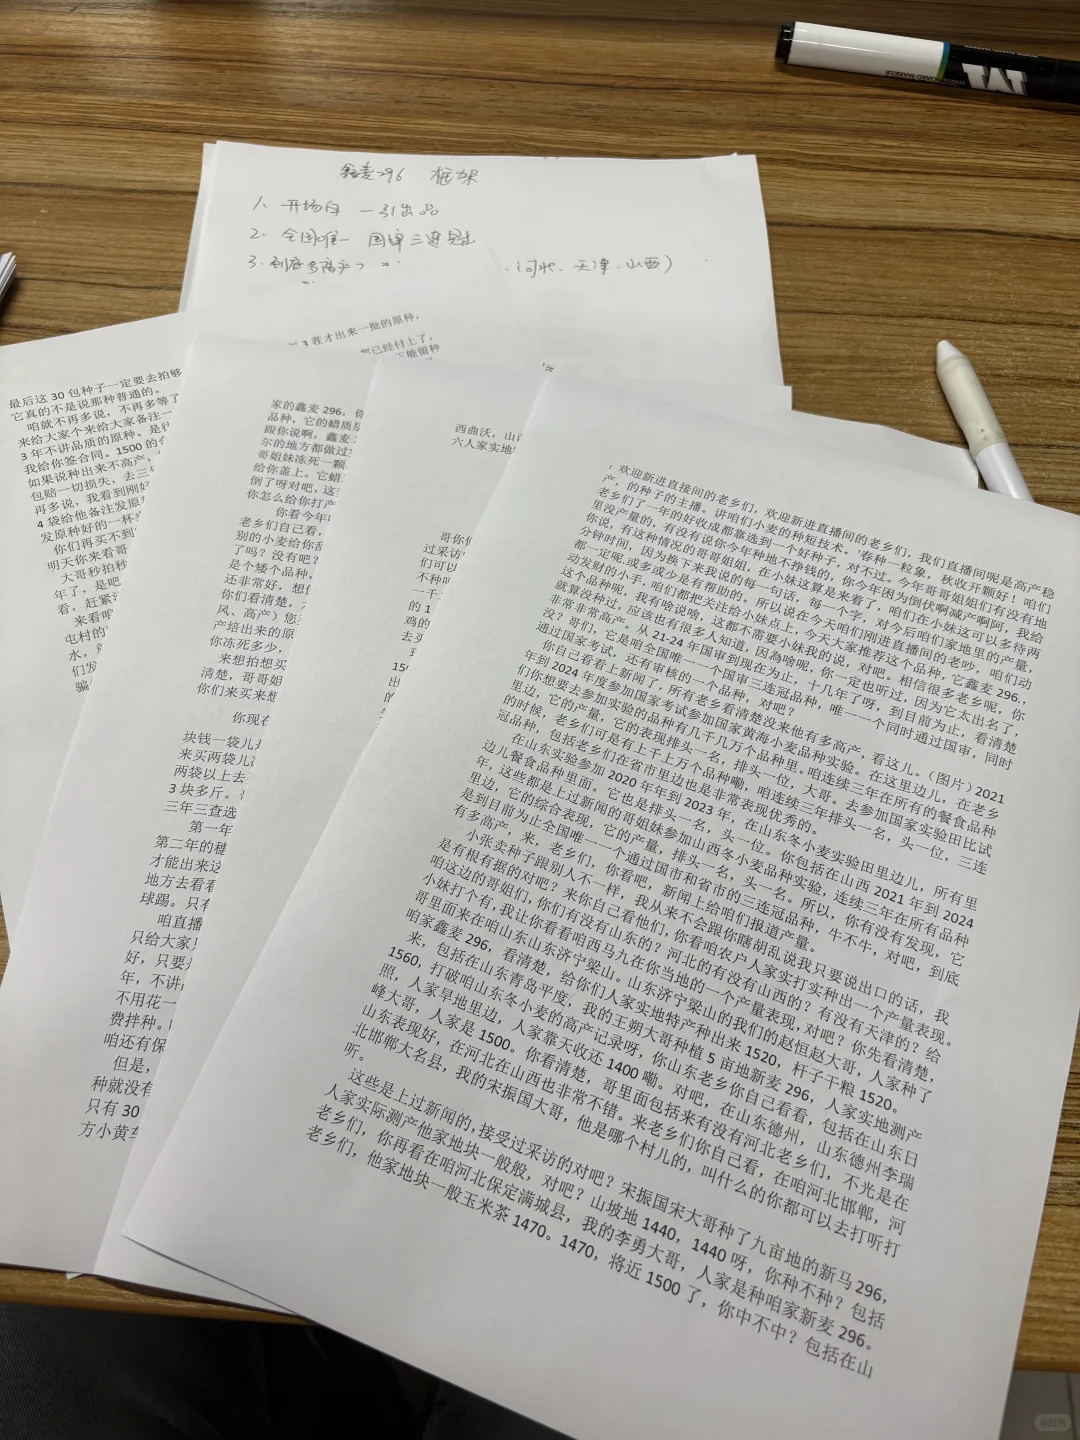 鑫麦296 框架
1、开场白 — 引出品
2、全国唯一 国审三连冠
3、到底多高产?
河北、天津、山西)
3 茬才出来一批的原种,
都已经付上了,
不能留种
最后这 30 包种子一定要去拍够
它真的不是说那种普通的。
咱就不再多说,不再多等了
来给大家个来给大家备注一
3 年不讲品质的原种。是往
我给你签合同。1500 的合
如果说种出来不高产,
包赔一切损失,去三年
再多说,我看到刚好
4 袋给他备注发原种
发原种好的一杯
你们再买不到
明天你来看哥
大哥秒拍秒
年了,是吧
看,赶紧
来看吧
屯村的
水,
们发
骗
家的鑫麦 296,你
品种,它的蜡质层
跟你说啊,鑫麦
尔的地方都做过
哥姐妹冻死一颗
给你盖上。它蜡
倒了呀对吧,这
你怎么给你打产
你看今年
老乡们自己看,
别的小麦给你刮
了吗?没有吧?
是个矮个品种,
还非常好,想
你们看清楚,
风、高产)您
产培出来的原
你冻死多少,
来想拍想买
清楚,哥哥姐
你们来买来想
你现在
块钱一袋儿
来买两袋儿
两袋以上去
3 块多斤。
三年三查选
第一年
第二年的穗
才能出来这
地方去看看
球踢。只有
咱直播
只给大家
好,只要
年,不讲
不用花一
费拌种。
咱还有保
但是,
种就没有
只有 30
方小黄车
西曲沃,山
六人家实地
哥你
过采访
们可以
不种
一千
的 1
鸡的
去买
150
出
的
:欢迎新进直接间的老乡们,欢迎新进直播间的老乡们,我们直播间呢是高产稳
产,的种子的主播。讲咱们小麦的种短技术。'春种一粒象,秋收开颗好!咱们
老乡们了一年的好收成都靠选到一个好种子,对不过。今年哥哥姐姐们有没有地
里没产量的,有没有说你今年种地不挣钱的,你今年因为倒伏啊减产啊阿,我给
你说,有这种情况的哥哥姐姐,在小妹这算是来着了,咱们在小妹这可以多待两
分钟时间,因为换下来我说的每一句话,每一个字,对今后咱们家地里的产量,
都一定呢.或多或少是有帮助的。所以说在今天咱们刚进直播间的老吵,咱们动
动发财的小手,咱们都把关注给小妹点上,今天大家推荐这个品种,它鑫麦 296.,
这个品种呢,我有啥说啥,这都不需要小妹我的说,对吧。相信很多老乡呢,你
就算没种过,应该也有很多人知道,因為啥呢,你一定也听过,因为它太出名了,
非常非常高产。从 21-24 年国审到现在为止,十几年了呀,到目前为止,看清楚
没?哥们,它是咱全国唯一一个国审三连冠品种,唯一一个同时通过国审,同时
通过国家考试,还有审核的一个品种,对吧?
你自己看看上新闻了,所有老乡看清楚没来他有多高产,看这儿。(图片)2021
年到 2024 年度参加国家考试参加国家黄海小麦品种实验。在这里边儿,在老乡
们你想要去参加实验的品种有几千几万个品种里。咱连续三年在所有的餐食品种
里边,它的产量,它的表现排头一名,排头一位,大哥。去参加国家实验田比试
的时候,老乡们可是有上千上万个品种嘞,咱连续三年排头一名,头一位,三连
冠品种,包括老乡们在省市里边也是非常表现优秀的。
在山东实验参加 2020 年年到 2023 年,在山东冬小麦实验田里边儿,所有里
边儿餐食品种里面。它也是排头一名,头一位。你包括在山西 2021 年到 2024
年,这些都是上过新闻的哥姐妹参加山西冬小麦品种实验,连续三年在所有品种
里边,它的综合表现,它的产量,排头一名,头一名。所以,你有没有发现,它
是到目前为止全国唯一一个通过国市和省市的三连冠品种,牛不牛,对吧,到底
有多高产,来,老乡们,你看吧,新闻上给咱们报道产量。
小张卖种子跟别人不一样,我从来不会跟你瞎胡乱说我只要说出口的话,我
是有根有据的对吧?来你自己看他们,你看咱农户人家实打实种出一个产量表现。
咱这边的哥姐们,你们有没有山东的?河北的有没有山西的?有没有天津的?给
小妹打个有,我让你看看咱西马九在你当地的一个产量表现,对吧?你先看清楚,
哥里面来在咱山东山东济宁梁山。山东济宁梁山的我们的赵恒赵大哥,人家种了
咱家鑫麦 296,看清楚,给你们人家实地特产种出来 1520,杆子干粮 1520。
来,包括在山东青岛平度,我的王朔大哥种植 5 亩地新麦 296,人家实地测产
1560,打破咱山东冬小麦的高产记录呀,你山东老乡你自己看看,包括在山东日
照,人家旱地里边,人家靠天收还 1400 嘞。对吧,在山东德州,山东德州李瑞
峰大哥,人家是 1500。你看清楚,哥里面包括来有没有河北老乡们,不光是在
山东表现好,在河北在山西也非常不错。来老乡们你自己看,在咱河北邯郸,河
北邯郸大名县,我的宋振国大哥,他是哪个村儿的,叫什么的你都可以去打听打
听。
这些是上过新闻的,接受过采访的对吧?宋振国宋大哥种了九亩地的新马 296,
人家实际测产他家地块一般般,对吧?山坡地 1440,1440 呀,你种不种?包括
老乡们,你再看在咱河北保定满城县,我的李勇大哥,人家是种咱家新麦 296。
老乡们,他家地块一般玉米茶 1470。1470,将近 1500 了,你中不中?包括在山
WHITE BOARD MARKER
小红书